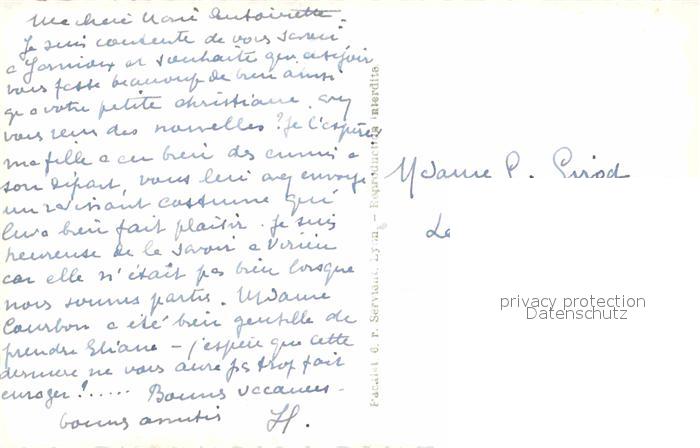 Ma chere Marie Antoinette.
Je suis contente de vous savoir
a Jarnioux et souhaite que ce sejour
vous fasse beaucoup de bien ainsi
qu'a votre petite christiane. avez
vous reçu des nouvelles? Je l'espère
ma fille a eu bien des ennuis a
son départ, vous lui avez envoye
un ravissant costume qui
lui a bien fait plaisir. Je suis
heureuse de la savoir a
car elle n'était pas bien lorsque
nous sommes partis. Madame
Courbon a été bien gentille de
prendre Eliane - j'espère que cette
derniere ne vous aura pas trop fait
enrager!...... Bonnes vacances -
bonnes amitiés
Mdame P. Pirod
Le
privacy protection
Datenschutz
Pacalet G. P. Servient, Lyon. - Reproduction interdite